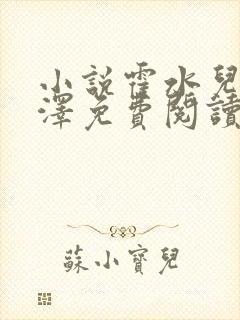 小說霍水兒
澤免費閱讀
蘇小寶兒